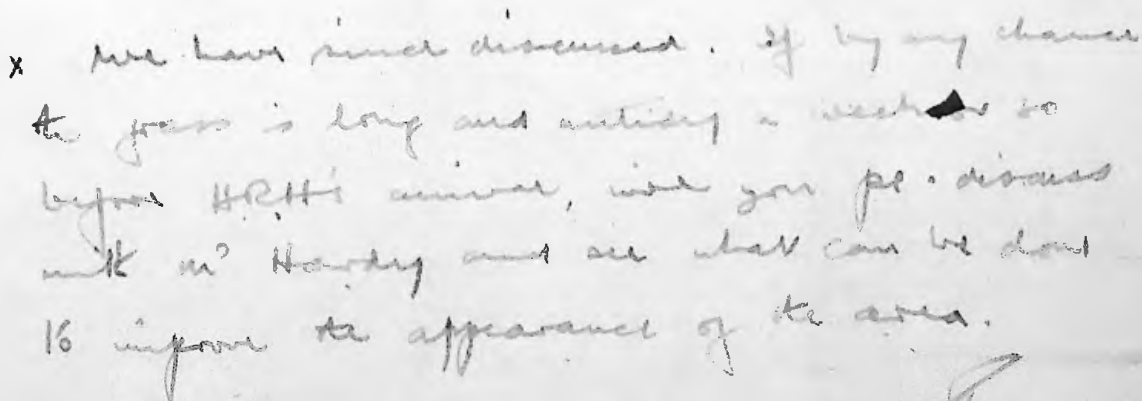 x We have since discussed. If by any chance
the grass is long and untidy a week or so
before HRH's arrival, will you pl. discuss
with Mr Hardy and see what can be done
to improve the appearance of the area.